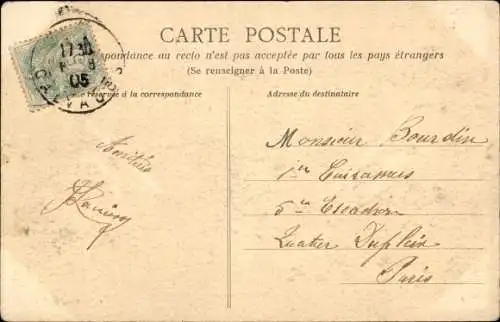 CARTE POSTALE
pondance au recto n'est pas acceptée par tous les pays étrangers
(Se renseigner à la Poste)
réservé à la correspondance
Adresse du destinataire
Amitiés
Monsieur Bourdin
1er Cuirassiers
5me Escadron
Quartier Dupleix
Paris
17 30
05